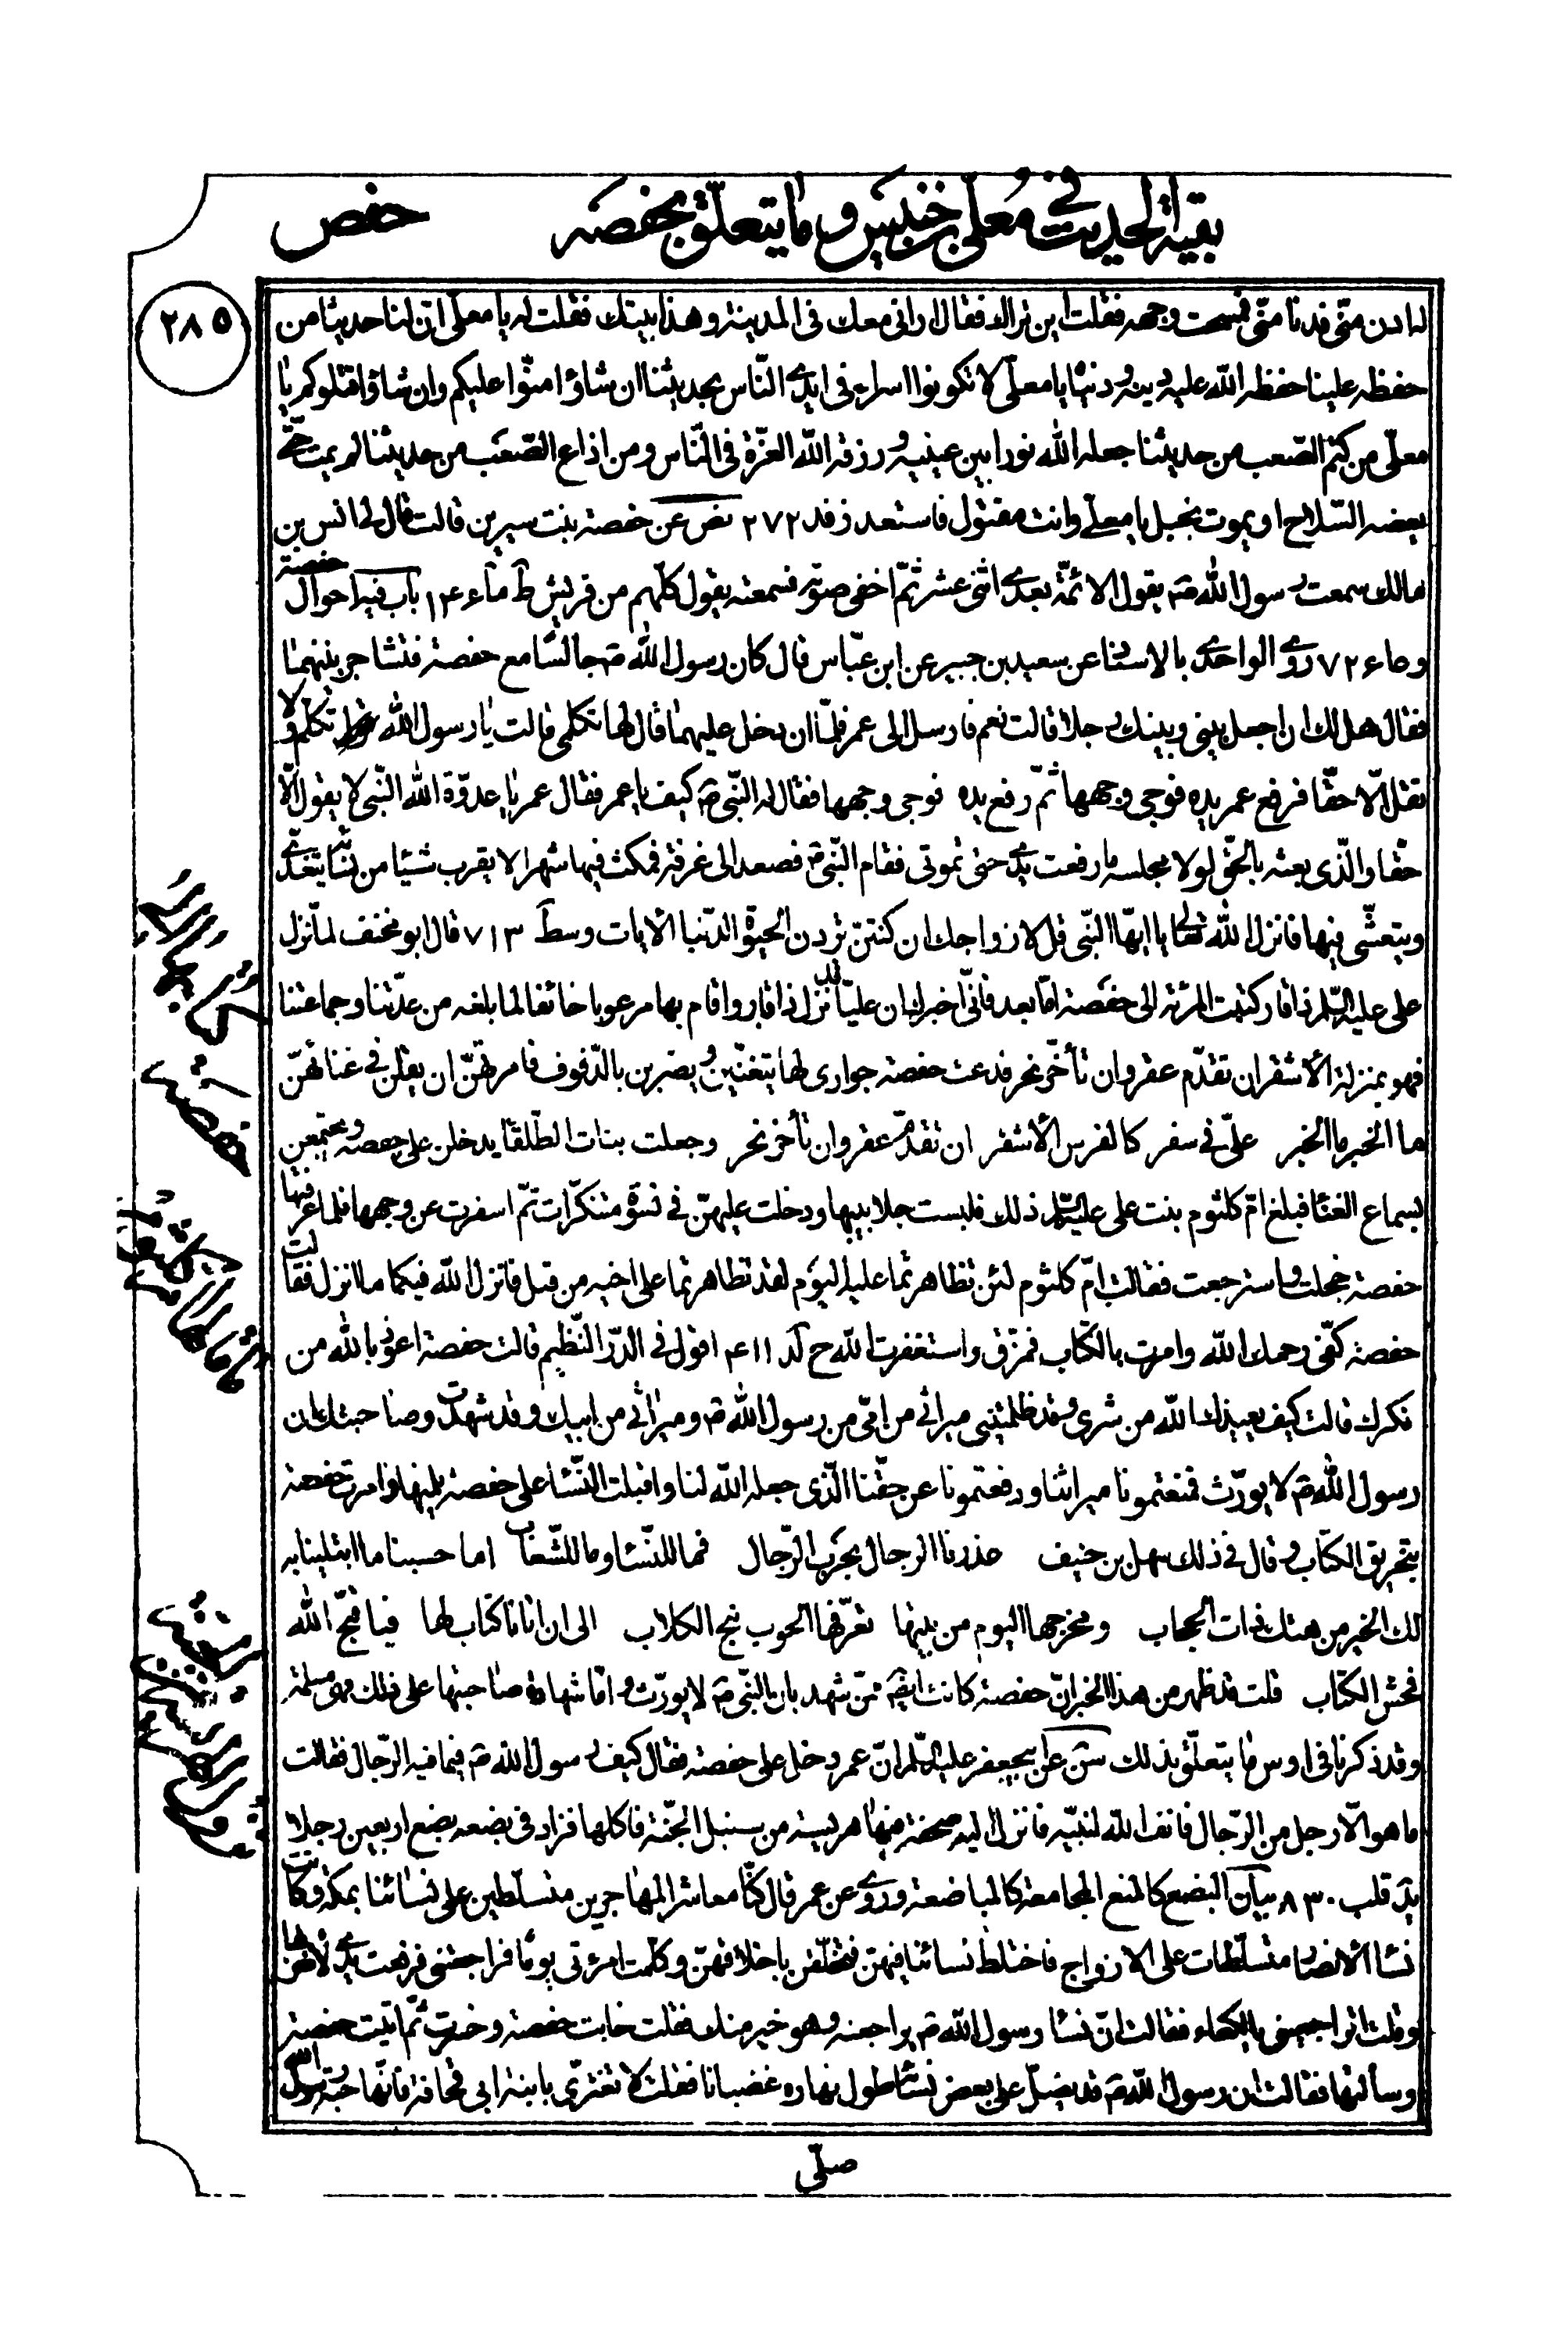 بقية الحديث في معلى بن خنيس وما يتعلق بحفصه
حفص
٢٨٥
ادن منّى فدنا منّى فمسحت وجهه فقلت اين تراك فقال ارانى معك فى المدينة وهذا بيتك فقلت له يا معلّى انّ لنا حديثا من
حفظه علينا حفظه اللّه عليه دينه ودنياه يا معلّى لا تكونوا اسراء فى ايدى النّاس بحديثنا ان شاؤا امنّوا عليكم وان شاؤا قتلوكم يا
معلّى من كتم الصّعب من حديثنا جعله اللّه نورا بين عينيه ورزقه اللّه العزّة فى النّاس ومن اذاع الصّعب من حديثنا لم يمت حتّى
يعضه السّلاح او يموت بخبل يا معلّى وانت مقتول فاستعد ز فد ٢٧٢ نص عن حفصة بنت سيرين قالت قال لى انس بن
مالك سمعت رسول اللّه ص يقول الائمّة بعدى اثنى عشر ثمّ اخفى صوته فسمعته يقول كلّهم من قريش ط ما ١٤٦ باب فيه احوال حفصة
وما ٧٢٦ روى الواحدى بالاسناد عن سعيد بن جبير عن ابن عبّاس قال كان رسول اللّه ص جالسا مع حفصة فتشاجر بينهما
فقال هل لك ان اجعل بينى وبينك رجلا قالت نعم فارسل الى عمر فلمّا ان دخل عليهما قال لها تكلمى قالت يا رسول اللّه تكلّم ولا
تقل الّا حقّا فرفع عمر يده فوجى وجهها ثمّ رفع يده فوجى وجهها فقال له النّبى ص كيف يا عمر فقال عمر يا عدوّة اللّه النّبى لا يقول الّا
حقّا والّذى بعثه بالحقّ لولا مجلسه ما رفعت يدى حتى تموتى فقام النّبى ص فصعد الى غرفة فمكث فيها شهرا لا يقرب شيئا من نسائه يتغدّى
ويتعشّى فيها فانزل اللّه تعالى يا ايّها النّبى قل لازواجك ان كنتنّ تردن الحيوة الدّنيا الآيات وسط ٧١٣ قال ابو مخنف لمّا نزل
على عليه السّلم ذا قار كتبت المرئة الى حفصة امّا بعد فانّى اخبرك ان عليّا قد نزل ذا قار واقام بها مرعوبا خائفا لما بلغه من عدّتنا وجماعتنا
فهو بمنزلة الأشقر ان تقدّم عقر وان تأخّر نحر فدعت حفصة جوارى لها يتغنّين ويضربن بالدّفوف فامرتهنّ ان يقلن فى غنائهنّ
ما الخبر ما الخبر علىّ فى سفر كالفرس الأشقر ان تقدّم عقر وان تأخر نحر وجعلت بنات الطّلقاء يدخلن على حفصة ويجتمعن
لسماع الغناء فبلغ امّ كلثوم بنت على عليه السّلم ذلك فلبست جلابيبها ودخلت عليهنّ فى نسوة متنكّرات ثمّ اسفرت عن وجهها فلما عرفتها
حفصة خجلت واسترجعت فقالت امّ كلثوم لئن تظاهرتما عليه اليوم لقد تظاهرتما على اخيه من قبل فانزل اللّه فيكما ما انزل فقالت
حفصة كفّى رحمك اللّه وامرت بالكتاب فمزّق واستغفرت اللّه ح لد ٤١١ اقول فى الدّر النّظيم قالت حفصة اعوذ باللّه من
نكرك قالت كيف يعيذك اللّه من شرى وقد ظلمتينى ميراثى من امّى من رسول اللّه ص وميراثى من ابيك وقد شهدت وصاحبتك ان
رسول اللّه ص لا يورّث فمنعتمونا ميراثنا ودفعتمونا عن حقّنا الّذى جعله اللّه لنا واقبلت النّساء على حفصة يلمنها وامرت حفصة
بتخريق الكتاب وقال فى ذلك سهل بن حنيف عذرنا الرجال بحرب الرّجال فما للنّساء وما للسّباب اما حسبنا ما ابتلينا به
لك الخير من هتك ذات الحجاب ومخرجها اليوم من بيتها تعرّفها الحوب نبح الكلاب الى ان اتانا كتاب لها فيا قبّح اللّه
فحش الكتاب قلت قد ظهر من هذا الخبر انّ حفصة كانت ايضا ممّن شهد بان النّبى ص لا يورّث وامّا شهادة صاحبتها على ذلك فهو مسلمة
وقد ذكرنا فى اوس ما يتعلّق بذلك سن عن ابيجعفر عليه السّلم انّ عمر دخل على حفصة فقال كيف رسول اللّه ص فيما فيه الرّجال فقالت
ما هو الّا رجل من الرّجال فانف اللّه لنبيّه فانزل اليه صحفة فيها هريسة من سنبل الجنّة فاكلها فزاد فى بضعه بضع اربعين رجلا
يد قلب ٨٣٠ بيان البضع كالمنع المجامعة كالمباضعة وروى عن عمر قال كنّا معاشر المهاجرين متسلّطين على نسائنا بمكّة وكانت
نساء الانصار متسلّطات على الازواج فاختلط نسائنا فيهنّ فتخلّقن باخلاقهنّ وكلّمت امرئتى يوما فراجعتنى فرفعت يدى لاضربها
وقلت اتراجعينى يا لكعاء فقالت انّ نساء رسول اللّه ص يراجعنه وهو خير منك فقلت خابت حفصة وخسرت ثمّ اتيت حفصة
وسألتها فقالت ان رسول اللّه ص قد يضلّ على بعض نسائه طول نهاره غضبانا فقلت لا تغترّى بابنة ابى قحافة فانّها حبّة رسول اللّه
صلّى